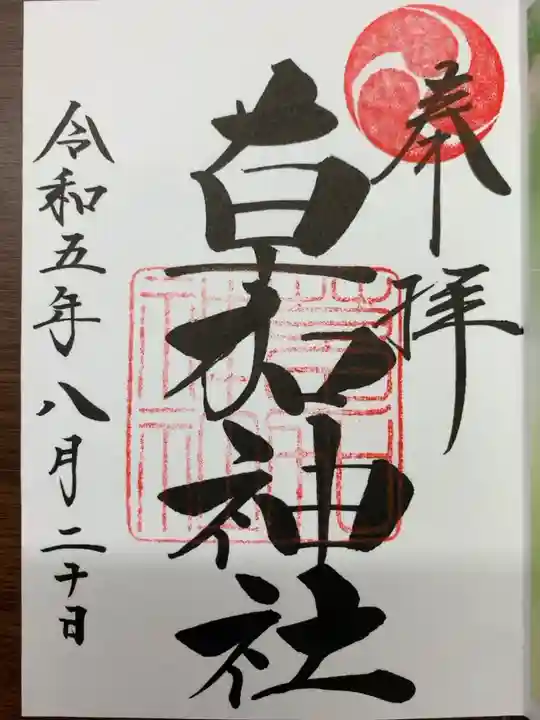 奉拝
神社
令和五年八月二十日